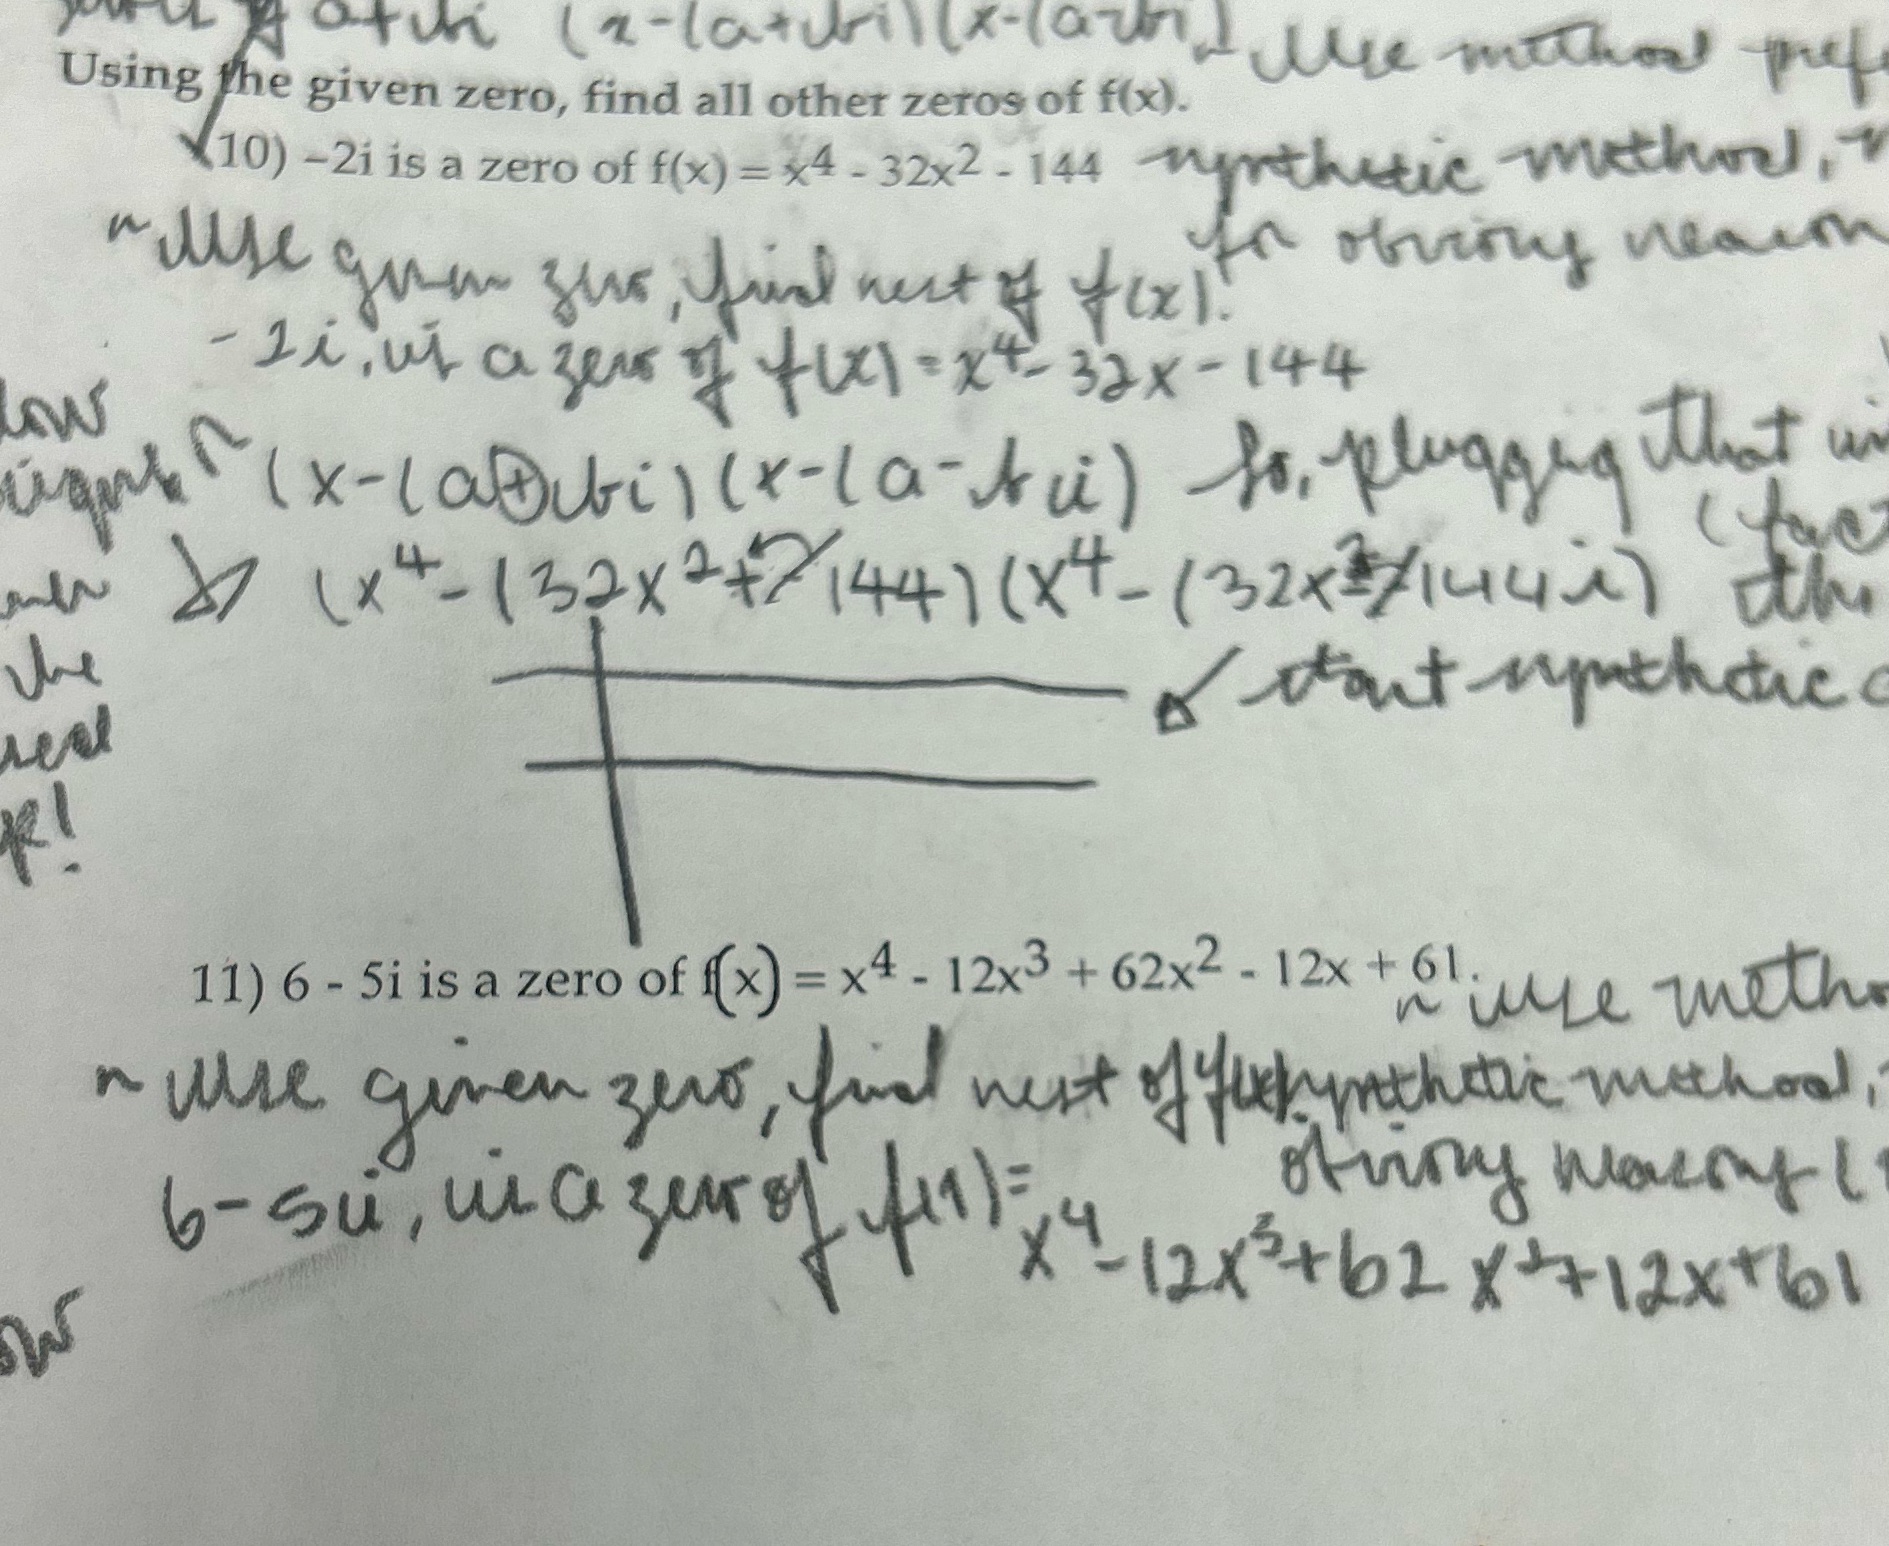 a+bi (x-(a+bi)(x-(a-bi)
~ Use method pref
Using the given zero, find all other zeros of f(x).
10) -2i is a zero of f(x) = x4 - 32x2 - 144
synthetic method,
for obvious reason
~ Use given zero, find rest of f(x).
-2i, is a zero of f(x) = x⁴ - 32x - 144
(x-(a+bi)(x-(a-bi) So, plugging that in
(fact
(x⁴-(32x²+144)(x⁴-(32x²144i)
the
start synthetic
real
11) 6 - 5i is a zero of f(x) = x4 - 12x3 + 62x2 - 12x + 61.
~ use metho
~ Use given zero, find rest of f(x).
synthetic method,
obvious reasons (
6-5i, is a zero of f(1)=
x⁴-12x³+62x²+12x+61